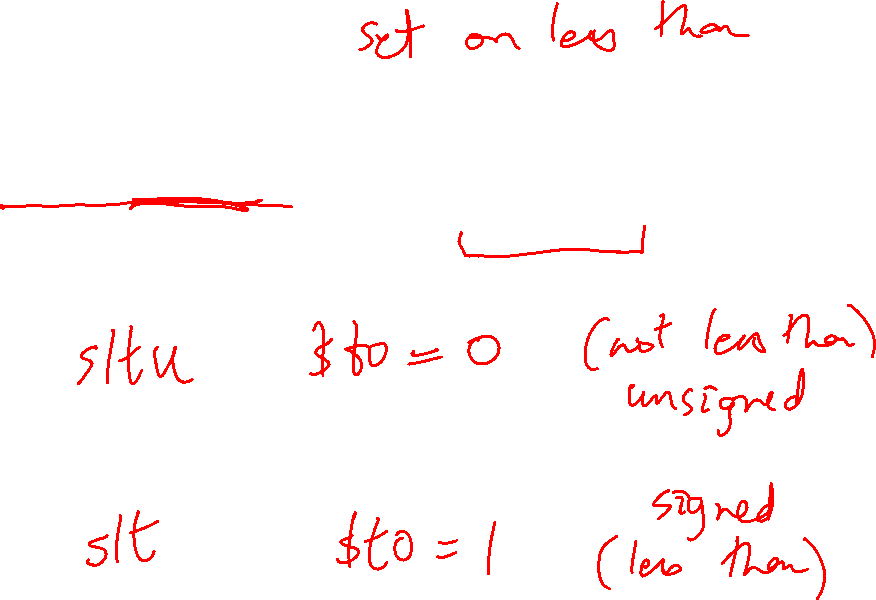 set on less than
sltu $t0 = 0 (not less than)
unsigned
signed
slt $t0 = 1 (less than)